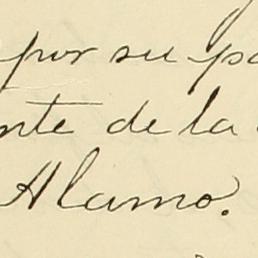 por su pa
nte de la
Alamo.